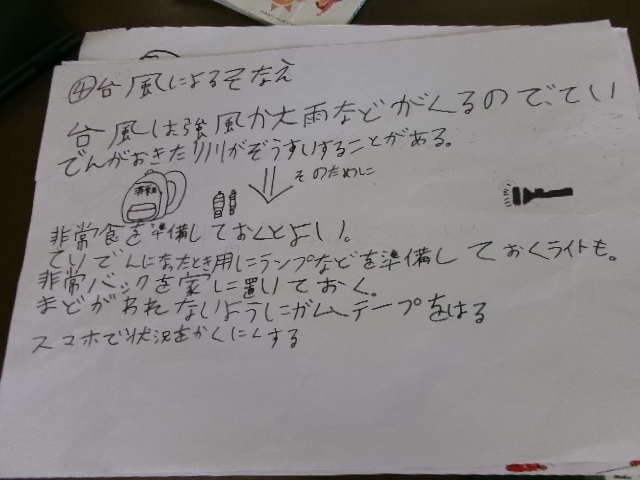 ④台風によるそなえ
台風は強風か大雨などがくるので、てい
でんがおきたり川がぞうすいすることがある。
そのために
非常食を準備しておくとよい。
ていでんになったとき用にランプなどを準備しておくライトも。
非常バックを家に置いておく。
まどがわれないようにガムテープをはる
スマホで状況をかくにんする